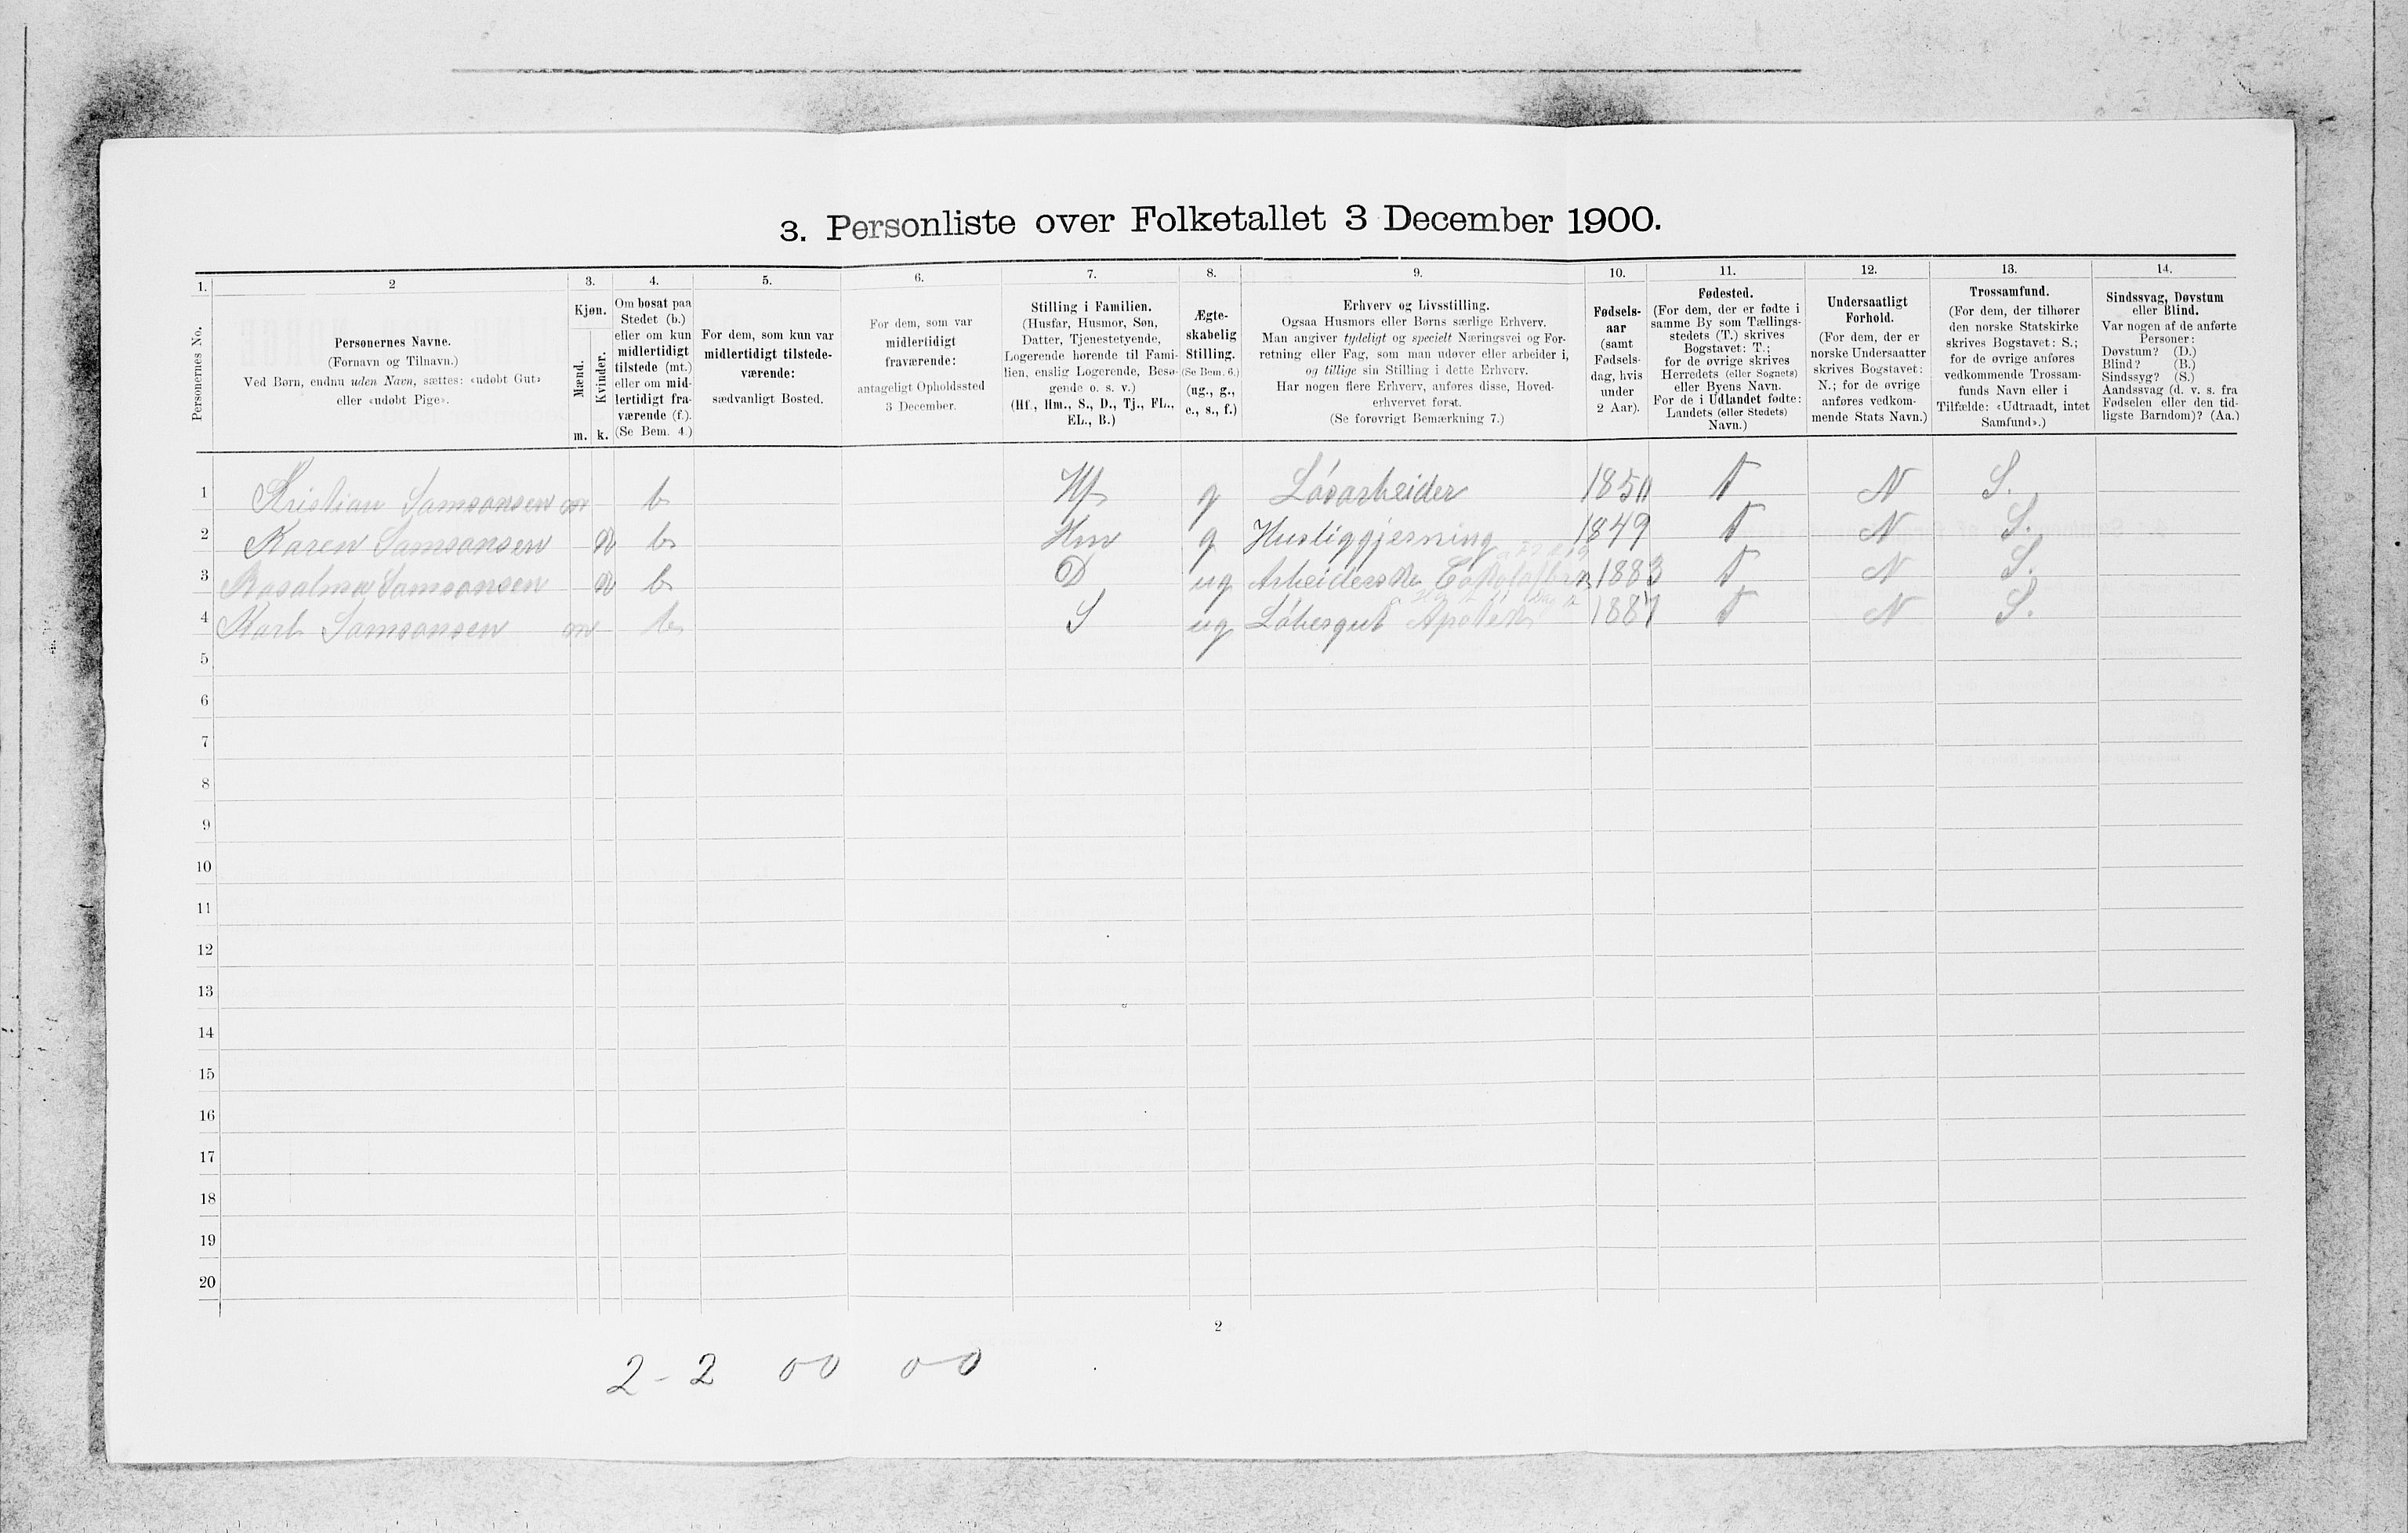 3. Personliste over Folketallet 3 December 1900.
1. 2 3. 4. 5. 6. 7. 8. 9. 10. 11. 12. 13. 14.
Personernes No.
Personernes Navne.
(Fornavn og Tilnavn.)
Ved Børn, endnu uden Navn, sættes: «udøbt Gut»
eller «udøbt Pige».
Kjøn.
Mænd.
Kvinder.
m. k.
Om bosat paa
Stedet (b.)
eller om kun
midlertidigt
tilstede (mt.)
eller om mid-
lertidigt fra-
værende (f.).
(Se Bem. 4.)
For dem, som kun var
midlertidigt tilstede-
værende:
sædvanligt Bosted.
For dem, som var
midlertidigt
fraværende:
antageligt Opholdssted
3 December.
Stilling i Familien.
(Husfar, Husmor, Søn,
Datter, Tjenestetyende,
Logerende hørende til Fami-
lien, enslig Logerende, Besø-
gende o. s. v.)
(Hf., Hm., S., D., Tj., FL.,
EL., B.)
Ægte-
skabelig
Stilling.
(Se Bem. 6.)
(ug., g.,
e., s., f.)
Erhverv og Livsstilling.
Ogsaa Husmors eller Børns særlige Erhverv.
Man angiver tydeligt og specielt Næringsvei og For-
retning eller Fag, som man udøver eller arbeider i,
og tillige sin Stilling i dette Erhverv.
Har nogen flere Erhverv, anføres disse, Hoved-
erhvervet først.
(Se forøvrigt Bemærkning 7.)
Fødsels-
aar
(samt
Fødsels-
dag, hvis
under
2 Aar).
Fødested.
(For dem, der er fødte i
samme By som Tællings-
stedets (T.) skrives
Bogstavet: T.;
for de øvrige skrives
Herredets (eller Sognets)
eller Byens Navn.
For de i Udlandet fødte:
Landets (eller Stedets)
Navn.)
Undersaatligt
Forhold.
(For dem, der er
norske Undersaatter
skrives Bogstavet:
N.; for de øvrige
anføres vedkom-
mende Stats Navn.)
Trossamfund.
(For dem, der tilhører
den norske Statskirke
skrives Bogstavet: S.;
for de øvrige anføres
vedkommende Trossam-
funds Navn eller i
Tilfælde: «Udtraadt, intet
Samfund».)
Sindssvag, Døvstum
eller Blind.
Var nogen af de anførte
Personer:
Døvstum? (D.)
Blind? (B.)
Sindssyg? (S.)
Aandssvag (d. v. s. fra
Fødselen eller den tid-
ligste Barndom)? (Aa.)
1 Kristian Samsonsen m b Hf g Løsarbeider 1850 T N S.
2 Karen Samsonsen k b Hm g Husliggjerning 1849 T N S.
3 Rosalma Samsonsen k b D ug Arbeiderske 1883 T N S.
4 Karl Samsonsen m b S ug Løbesgut Apothek 1887 T N S.
5
6
7
8
9
10
11
12
13
14
15
16
17
18
19
20
2
2 - 2 00 00